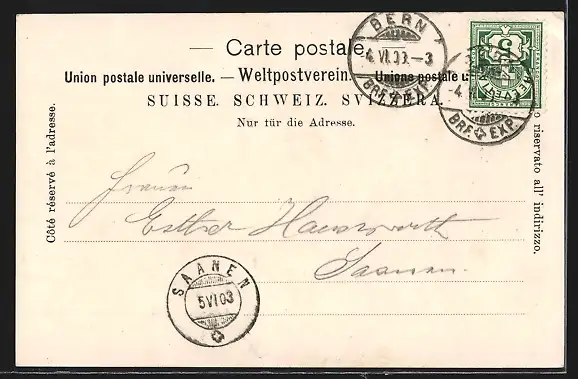 BERN
4.VI.03.-3
BRF. EXP.
Carte postale.
Union postale universelle. — Weltpostverein. — Unione postale u
SUISSE. SCHWEIZ. SVIZZERA.
Nur für die Adresse.
BRF. EXP.
5
HELVETIA
Côté réservé à l'adresse.
o riservato all' indirizzo.
Esther
Saanen.
SAANEN
5VI03